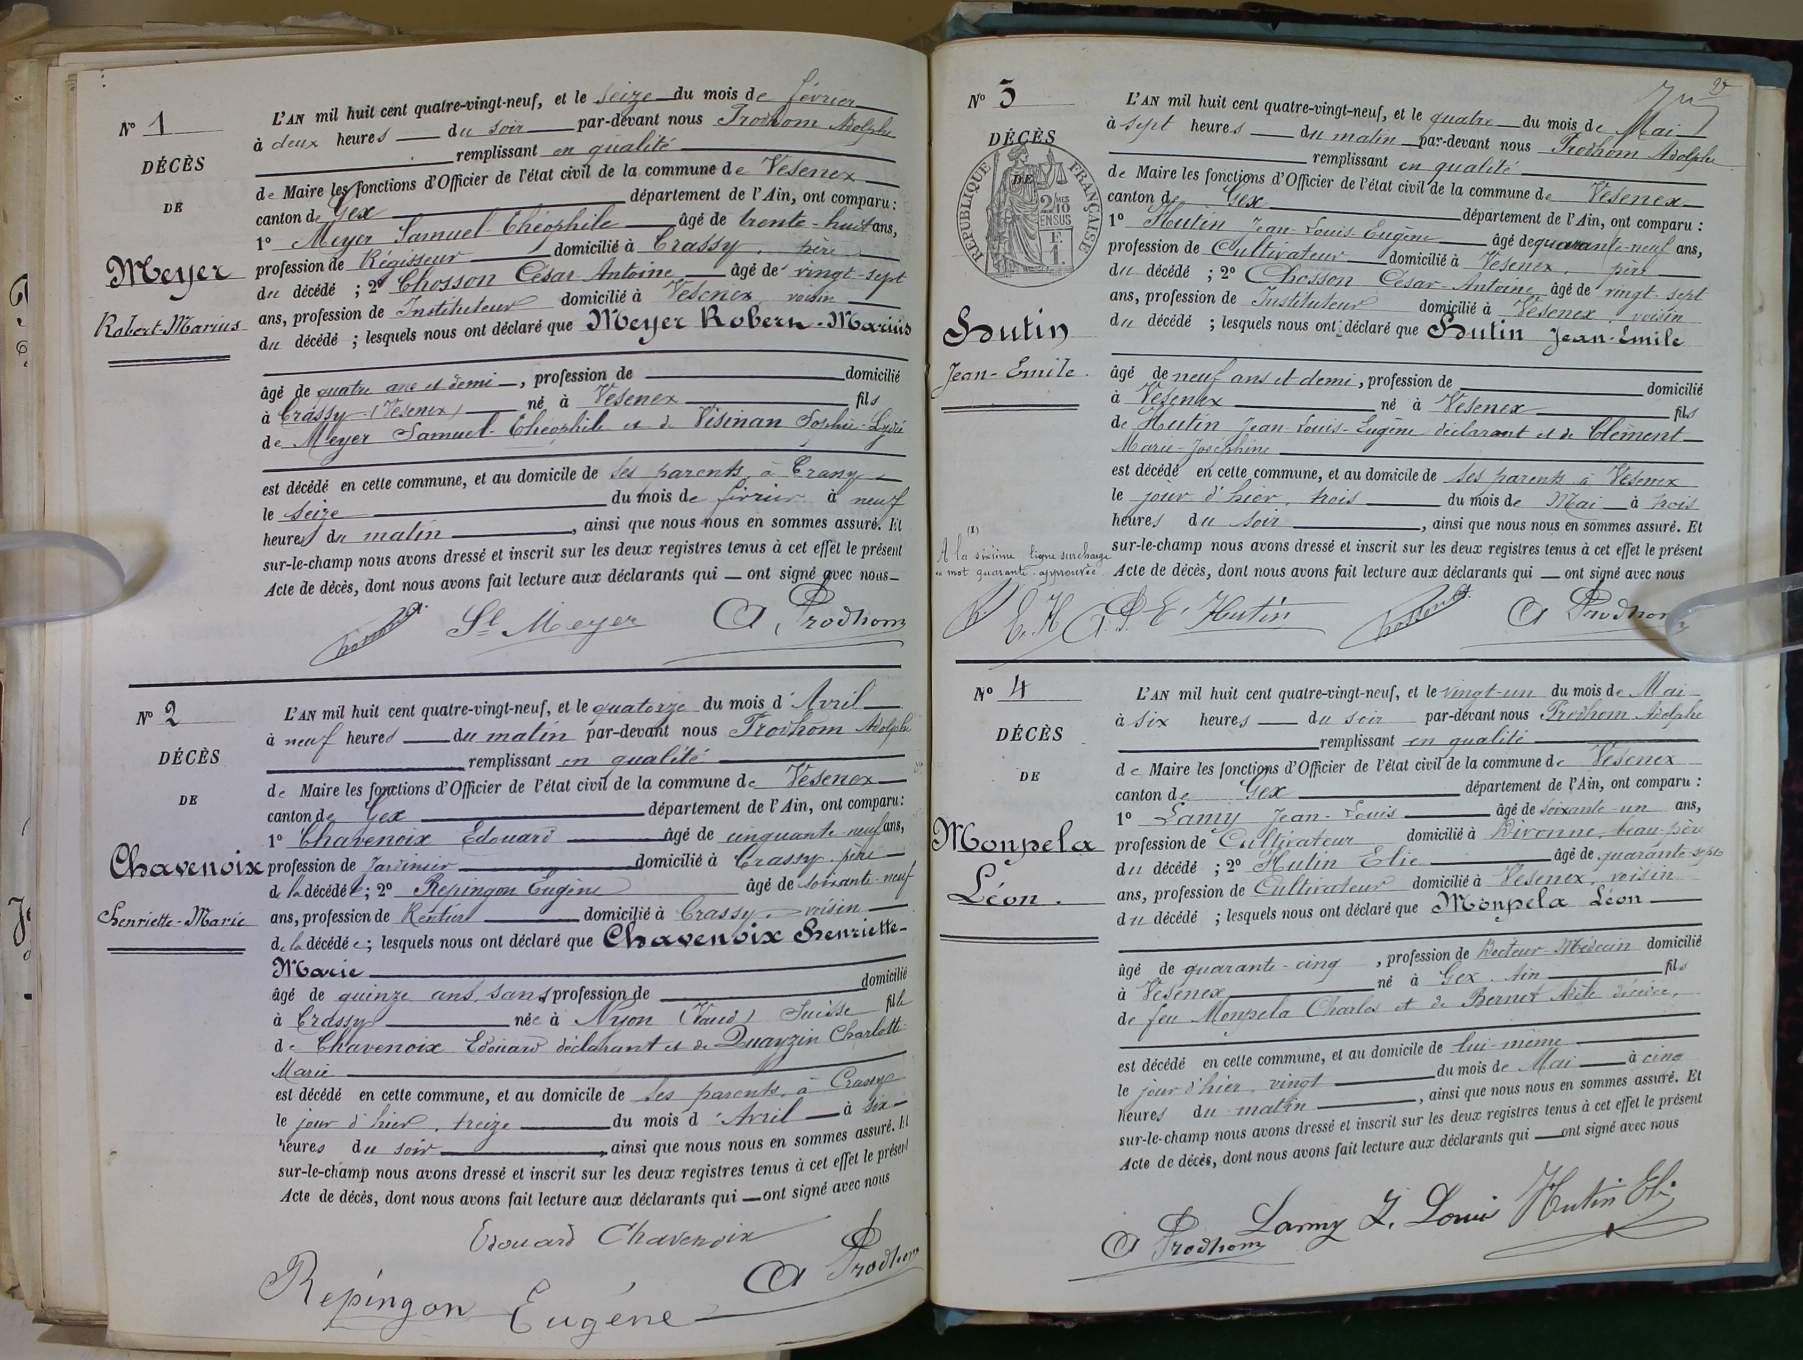 N° 1
DÉCÈS
DE
Meyer
Robert-Marius
L'AN mil huit cent quatre-vingt-neuf, et le seize du mois de février
à deux heures du soir par-devant nous Prodhom Adolphe
remplissant en qualité
de Maire les fonctions d'Officier de l'état civil de la commune de Vesenex
canton de Gex département de l'Ain, ont comparu :
1° Meyer Samuel-Théophile âgé de trente-huit ans,
profession de Régisseur domicilié à Crassy, père
du décédé ; 2° Chosson César-Antoine âgé de vingt-sept
ans, profession de Instituteur domicilié à Vesenex, voisin
du décédé ; lesquels nous ont déclaré que Meyer Robern-Marius
âgé de quatre ans et demi, profession de domicilié
à Crassy (Vesenex) né à Vesenex fils
de Meyer Samuel-Théophile et de Visinan Sophie-Lydie
est décédé en cette commune, et au domicile de ses parents à Crassy
le seize du mois de février à neuf
heures du matin, ainsi que nous nous en sommes assuré. Et
sur-le-champ nous avons dressé et inscrit sur les deux registres tenus à cet effet le présent
Acte de décès, dont nous avons fait lecture aux déclarants qui ont signé avec nous
St Meyer A Prodhom
N° 2
DÉCÈS
DE
Chavenoix
Henriette-Marie
L'AN mil huit cent quatre-vingt-neuf, et le quatorze du mois d'Avril
à neuf heures du matin par-devant nous Prodhom Adolphe
remplissant en qualité
de Maire les fonctions d'Officier de l'état civil de la commune de Vesenex
canton de Gex département de l'Ain, ont comparu :
1° Chavenoix Edouard âgé de cinquante-neuf ans,
profession de Jardinier domicilié à Crassy, père
de la décédée ; 2° Repingon Eugène âgé de soixante-neuf
ans, profession de Rentier domicilié à Crassy, voisin
de la décédée ; lesquels nous ont déclaré que Chavenoix Henriette-
Marie
âgé de quinze ans, sans profession de domicilié
à Crassy née à Nyon (Vaud) Suisse fille
de Chavenoix Edouard déclarant et de Quayzin Charlotte
Marie
est décédé en cette commune, et au domicile de ses parents, à Crassy
le jour d'hier, treize du mois d'Avril à six
heures du soir, ainsi que nous nous en sommes assuré. Et
sur-le-champ nous avons dressé et inscrit sur les deux registres tenus à cet effet le présent
Acte de décès, dont nous avons fait lecture aux déclarants qui ont signé avec nous
Edouard Chavenoix
A Prodhom
Repingon Eugéne
2
N° 3
DÉCÈS
DE
RÉPUBLIQUE FRANÇAISE
2/10
EN SUS
Hutin
Jean-Emile.
L'AN mil huit cent quatre-vingt-neuf, et le quatre du mois de Mai
à sept heures du matin par-devant nous Prodhom Adolphe
remplissant en qualité
de Maire les fonctions d'Officier de l'état civil de la commune de Vesenex
canton de Gex département de l'Ain, ont comparu :
1° Hutin Jean-Louis-Eugène âgé de quarante-neuf ans,
profession de Cultivateur domicilié à Vesenex, père
du décédé ; 2° Chosson César-Antoine âgé de vingt-sept
ans, profession de Instituteur domicilié à Vesenex, voisin
du décédé ; lesquels nous ont déclaré que Hutin Jean-Emile
âgé de neuf ans et demi, profession de domicilié
à Vésenex né à Vesenex fils
de Hutin Jean-Louis-Eugène déclarant et de Clément
Marie-Joséphine
est décédé en cette commune, et au domicile de ses parents à Vesenex
le jour d'hier, trois du mois de Mai à trois
heures du soir, ainsi que nous nous en sommes assuré. Et
sur-le-champ nous avons dressé et inscrit sur les deux registres tenus à cet effet le présent
Acte de décès, dont nous avons fait lecture aux déclarants qui ont signé avec nous
A la sixième ligne surcharge
mot quarante approuvée
E. H A. P. E. Hutin A Prodhom
N° 4
DÉCÈS
DE
Monpela
Léon.
L'AN mil huit cent quatre-vingt-neuf, et le vingt-un du mois de Mai
à six heures du soir par-devant nous Prodhom Adolphe
remplissant en qualité
de Maire les fonctions d'Officier de l'état civil de la commune de Vesenex
canton de Gex département de l'Ain, ont comparu :
1° Lamy Jean-Louis âgé de soixante-un ans,
profession de Cultivateur domicilié à Divonne, beau-père
du décédé ; 2° Hutin Elie âgé de quarante-sept
ans, profession de Cultivateur domicilié à Vesenex, voisin
du décédé ; lesquels nous ont déclaré que Monpela Léon
âgé de quarante-cinq, profession de Docteur-Médecin domicilié
à Vesenex né à Gex Ain fils
de feu Monpela Charles et de Bernet Adèle décédée,
est décédé en cette commune, et au domicile de lui-même
le jour d'hier, vingt du mois de Mai à cinq
heures du matin, ainsi que nous nous en sommes assuré. Et
sur-le-champ nous avons dressé et inscrit sur les deux registres tenus à cet effet le présent
Acte de décès, dont nous avons fait lecture aux déclarants qui ont signé avec nous
A Prodhom Lamy J. Louis Hutin Eli